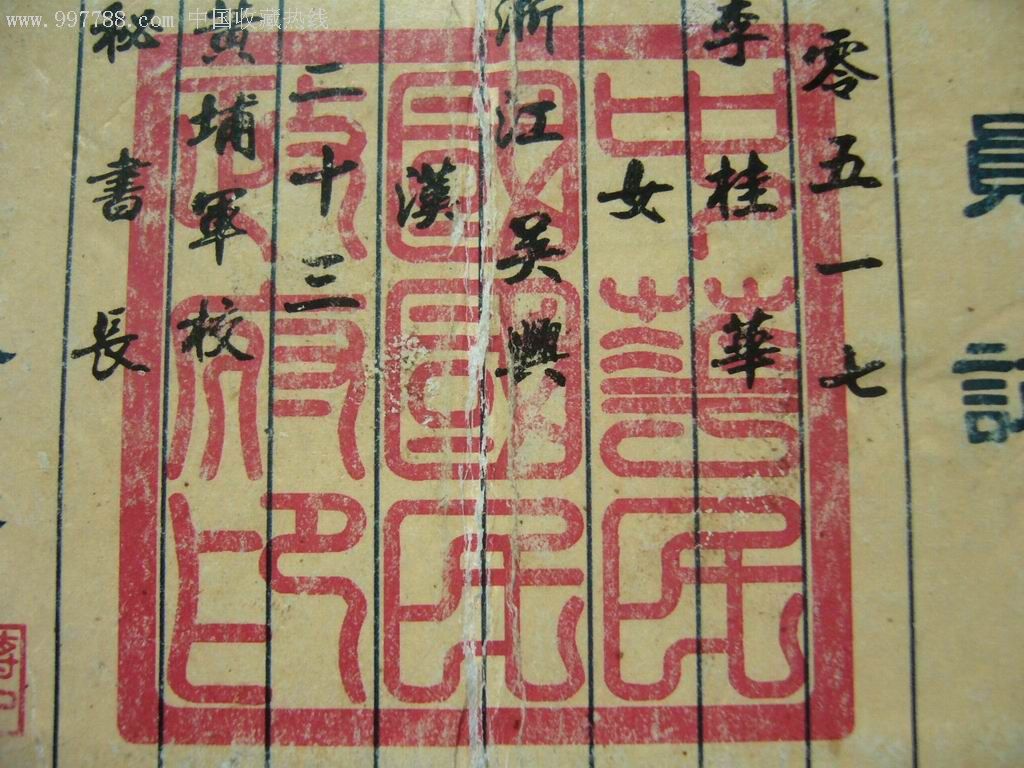 www.997788.com 中国收藏热线
員
零五一七
李桂華
女
浙江吳興
漢
二十三
黃埔軍校
秘書長
中華民
國國民
政府印